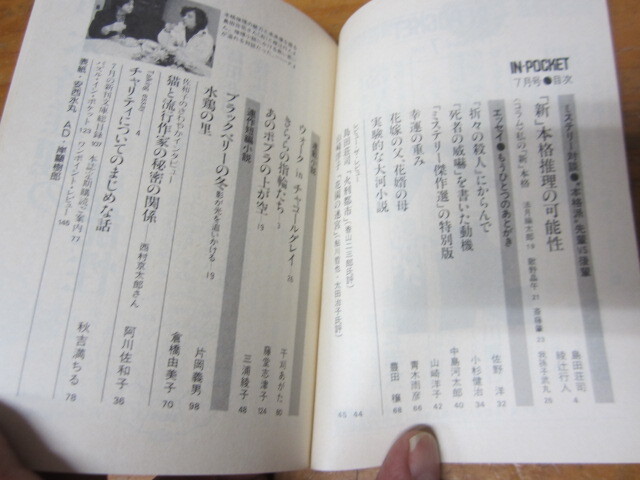 IN★POCKET
7月号●目次
ミステリー対談●「本格派」先輩vs.後輩
「新」本格推理の可能性
島田荘司
綾辻行人 4
〈コラム・私の「新」本格〉
法月綸太郎 19
歌野晶午 21
斎藤肇 23
我孫子武丸 25
エッセイ●もうひとつのあとがき
『折々の殺人』にからんで
佐野 洋 32
『死者の威嚇』を書いた動機
小杉健治 34
『ミステリー傑作選』の特別版
中島河太郎 40
幸運の重み
山崎洋子 42
花嫁の父、花婿の母
青木雨彦 66
実験的な大河小説
豊田 穣 68
島田荘司『火刑都市』(香山二三郎氏評) 44
連載小説
ウォーク in チャコールグレイ
干刈あがた 80
きららの指輪たち
藤堂志津子 124
あのポプラの上が空
三浦綾子 48
連作短編小説
ブラックベリーの冬
水鶏の里
片岡義男 98
佐和子のさわやかインタビュー
猫と流行作家の秘密の関係
西村京太郎さん
倉橋由美子 70
チャリティについてのまじめな話
阿川佐和子 36
秋吉満ちる 78
7月の新刊文庫総目録
本誌定期購読ご案内 77
パズル・イン・ポケット 123
ワンポイント・レビュー
表紙・安西水丸
AD・岸顯樹郎